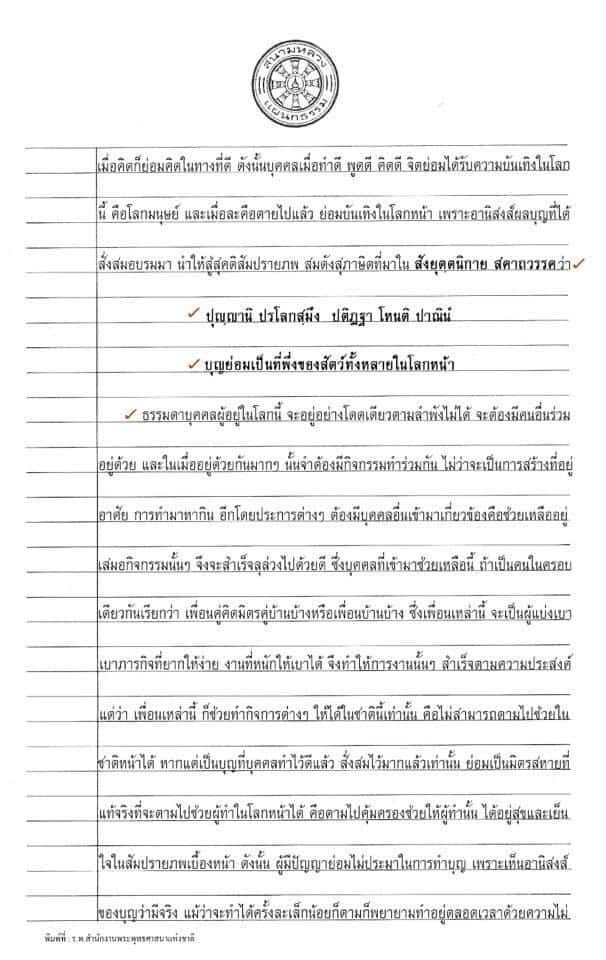 สนามหลวง
แผนกธรรม
เมื่อคิดก็ย่อมคิดในทางที่ดี ดังนั้นบุคคลเมื่อทำดี พูดดี คิดดี จิตย่อมได้รับความบันเทิงในโลก
นี้ คือโลกมนุษย์ และเมื่อละคือตายไปแล้ว ย่อมบันเทิงในโลกหน้า เพราะอานิสงส์ผลบุญที่ได้
สั่งสมอบรมมา นำให้สู่สุคติสัมปรายภพ สมดังสุภาษิตที่มาใน สังยุตตนิกาย สคาถวรรคว่า
ปุญฺญานิ ปรโลกสฺมึง ปติฏฺฐา โหนฺติ ปาณินํ
บุญย่อมเป็นที่พึ่งของสัตว์ทั้งหลายในโลกหน้า
ธรรมดาบุคคลผู้อยู่ในโลกนี้ จะอยู่อย่างโดดเดียวตามลำพังไม่ได้ จะต้องมีคนอื่นร่วม
อยู่ด้วย และในเมื่ออยู่ด้วยกันมากๆ นั้นจำต้องมีกิจกรรมทำร่วมกัน ไม่ว่าจะเป็นการสร้างที่อยู่
อาศัย การทำมาหากิน อีกโดยประการต่างๆ ต้องมีบุคคลอื่นเข้ามาเกี่ยวข้องคือช่วยเหลืออยู่
เสมอกิจกรรมนั้นๆ จึงจะสำเร็จลุล่วงไปด้วยดี ซึ่งบุคคลที่เข้ามาช่วยเหลือนี้ ถ้าเป็นคนในครอบ
เดียวกันเรียกว่า เพื่อนคู่คิดมิตรคู่บ้านบ้างหรือเพื่อนบ้านบ้าง ซึ่งเพื่อนเหล่านี้ จะเป็นผู้แบ่งเบา
เบาภารกิจที่ยากให้ง่าย งานที่หนักให้เบาได้ จึงทำให้การงานนั้นๆ สำเร็จตามความประสงค์
แต่ว่า เพื่อนเหล่านี้ ก็ช่วยทำกิจการต่างๆ ให้ได้ในชาตินี้เท่านั้น คือไม่สามารถตามไปช่วยใน
ชาติหน้าได้ หากแต่เป็นบุญที่บุคคลทำไว้ดีแล้ว สั่งสมไว้มากแล้วเท่านั้น ย่อมเป็นมิตรสหายที่
แท้จริงที่จะตามไปช่วยผู้ทำในโลกหน้าได้ คือตามไปคุ้มครองช่วยให้ผู้ทำนั้น ได้อยู่สุขและเย็น
ใจในสัมปรายภพเบื้องหน้า ดังนั้น ผู้มีปัญญาย่อมไม่ประมาในการทำบุญ เพราะเห็นอานิสงส์
ของบุญว่ามีจริง แม้ว่าจะทำได้ครั้งละเล็กน้อยก็ตามก็พยายามทำอยู่ตลอดเวลาด้วยความไม่
พิมพ์ที่ : ร.พ.สำนักงานพระพุทธศาสนาแห่งชาติ